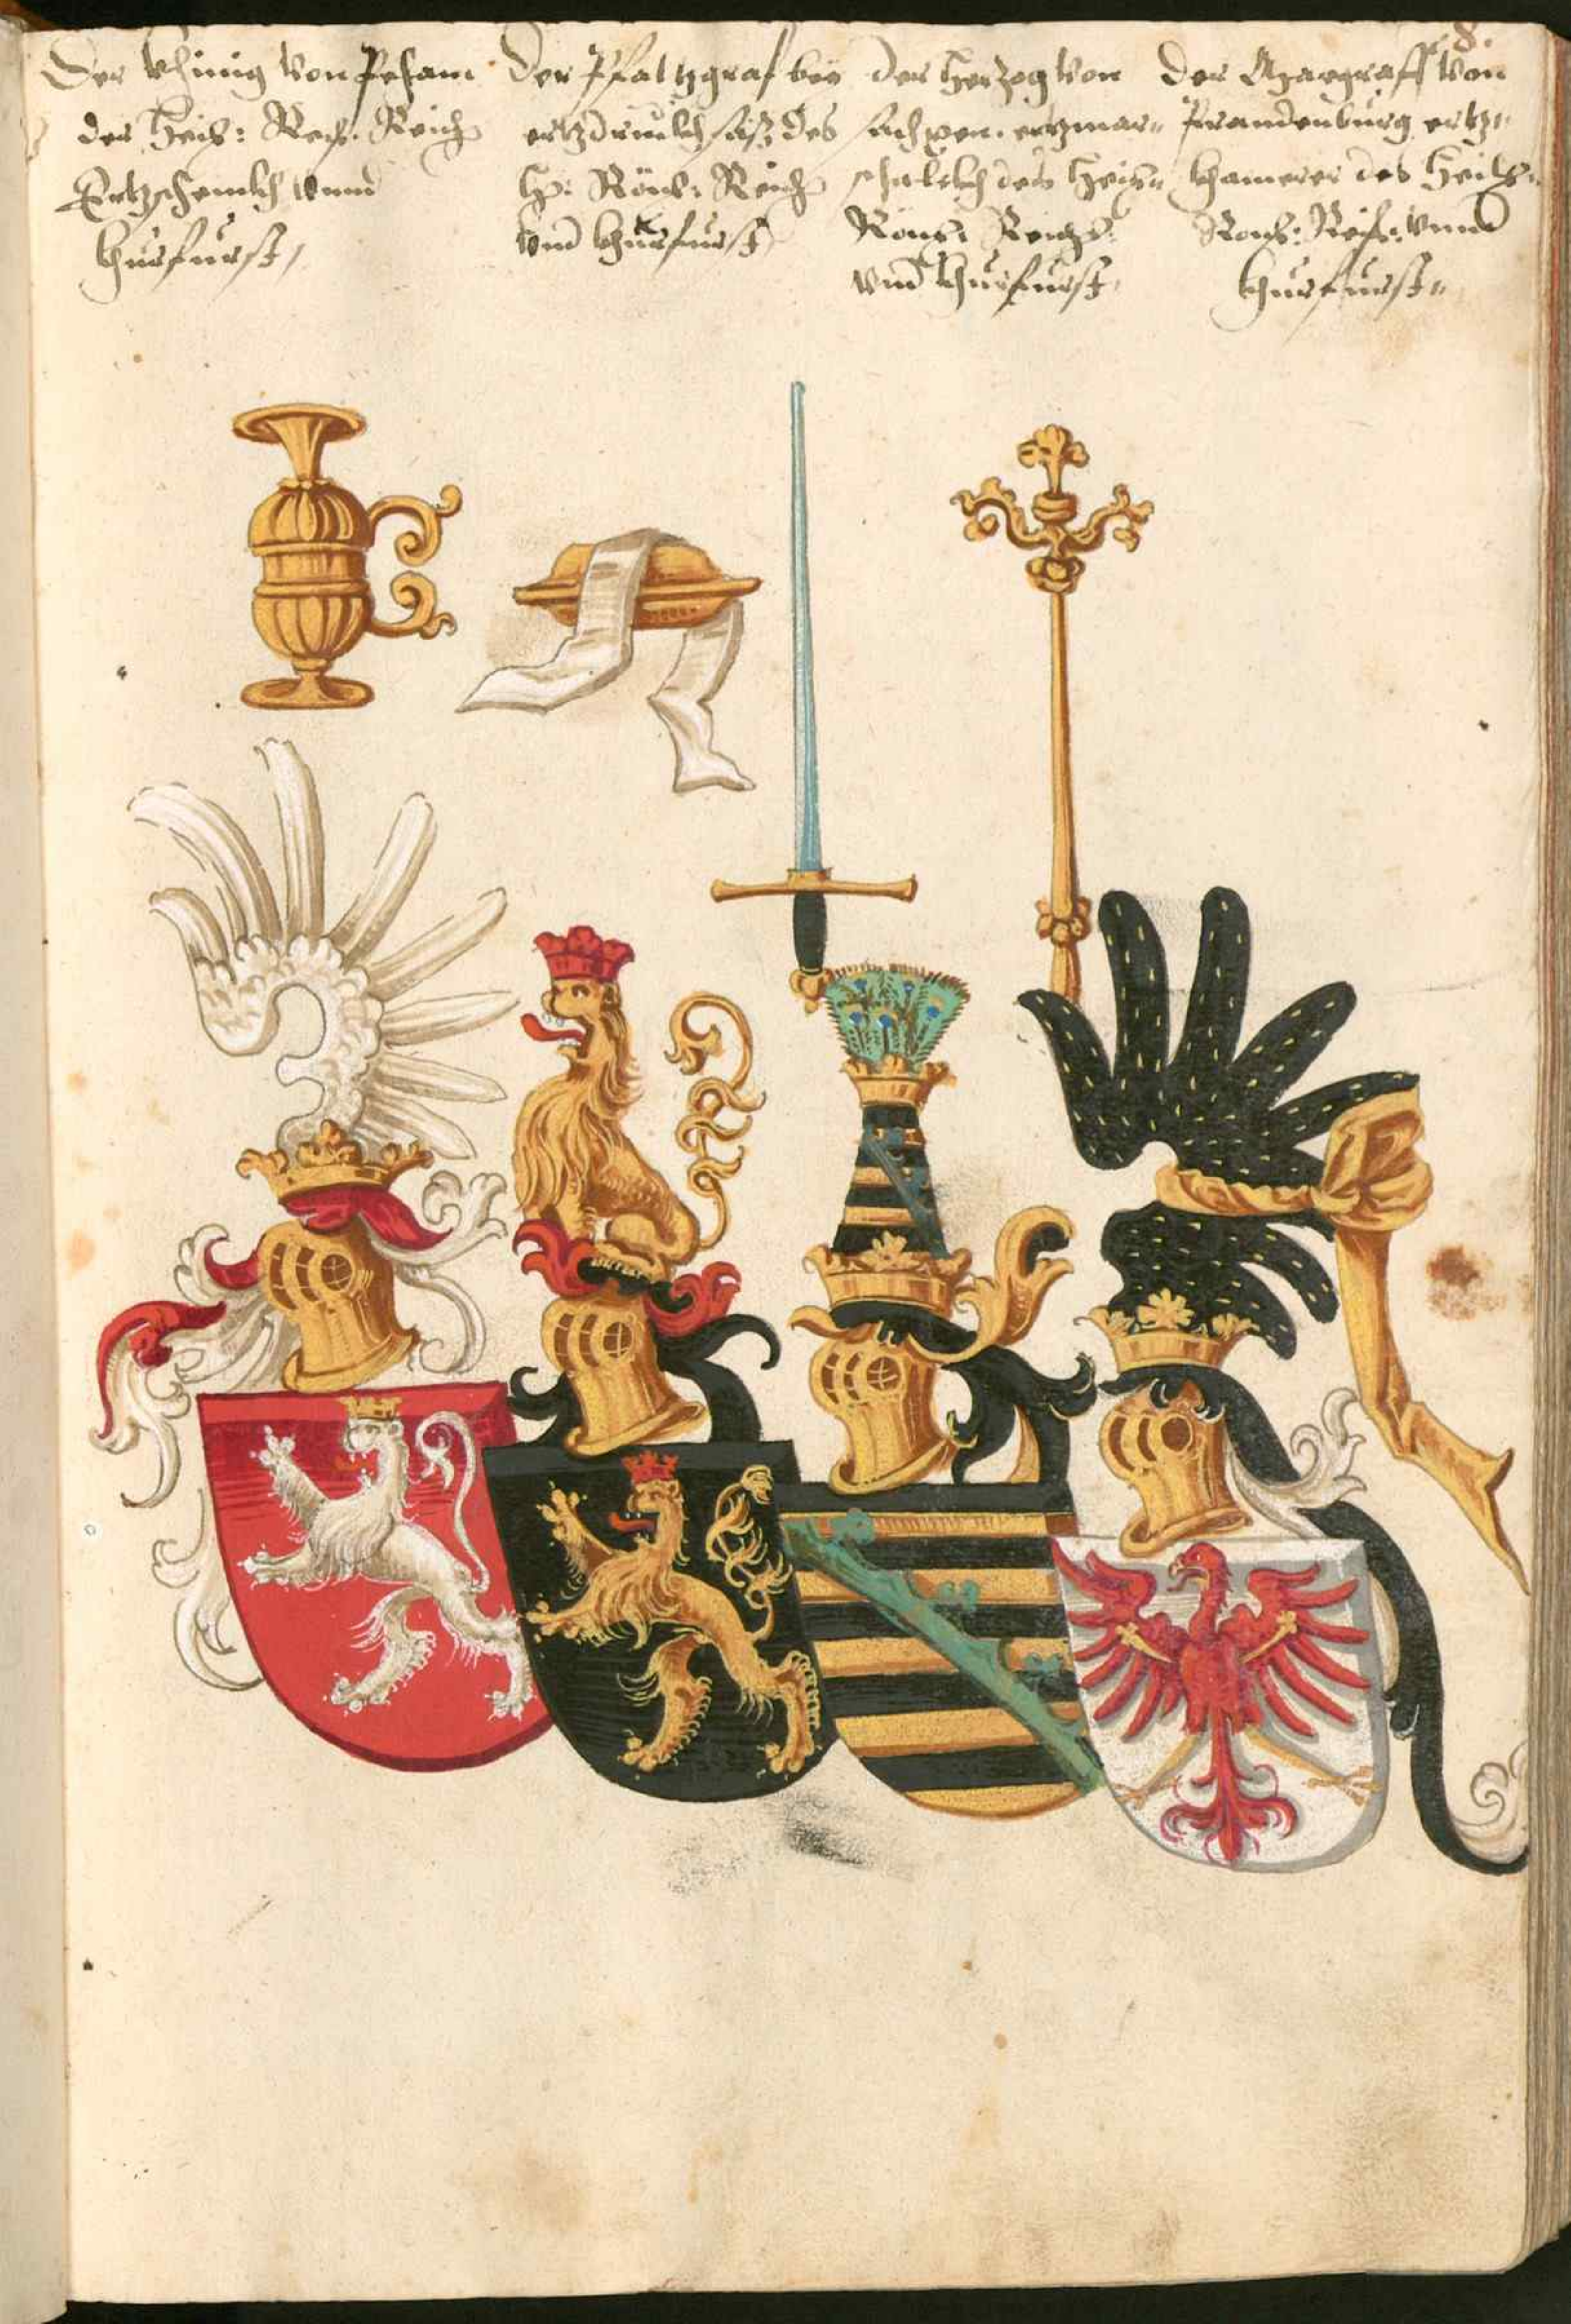 8.
Der Khinig von Peham
des Heil: Rech: Reich
Ertzschenkh vnnd
khurfurst,
Der Pfaltzgraf bey
ertzdruckhsäß des
H: Röms: Reich
vnd khurfurst,
Der Hertzog von
sachsen. ertzmar=
schalckh des Heig=
Röms: Reichs:
vnd khurfurst,
Der Margraff von
Prandenburg ertz=
khamerer des Heilg=
Romß: Reihs: vnnd
khurfurst=